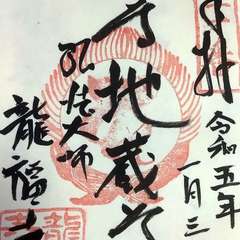 奉拝
令和五年
一月三
地蔵尊
弘法大師
龍福寺